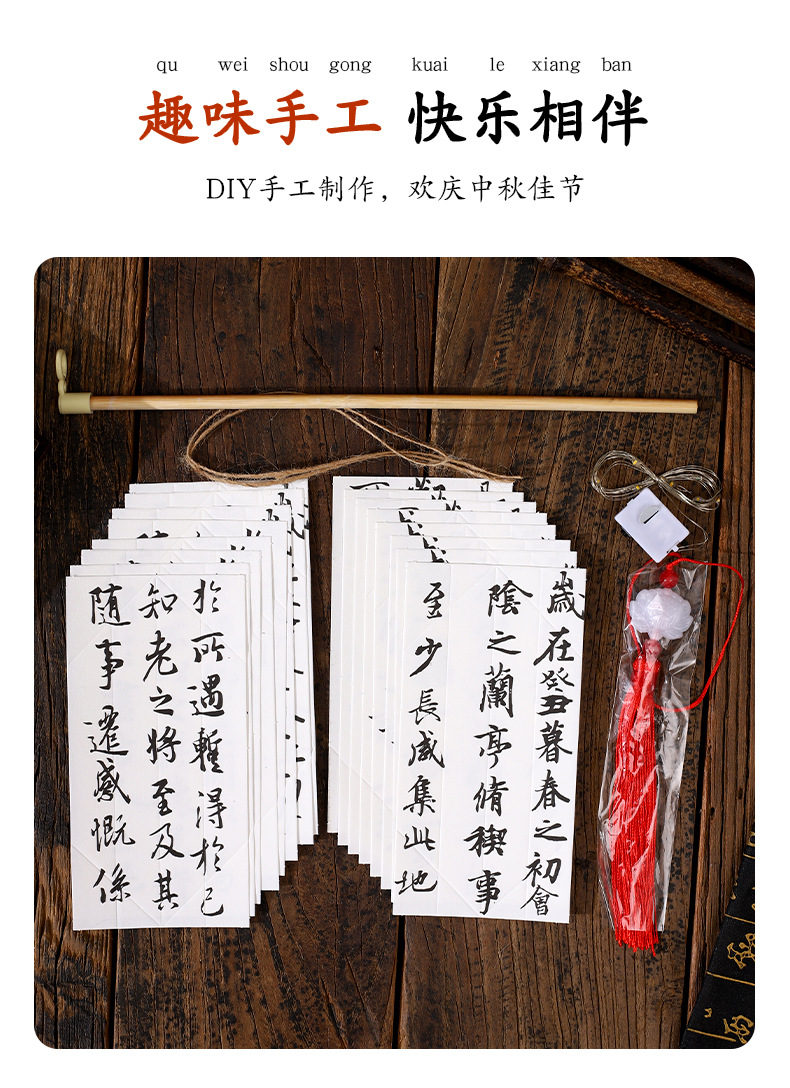 qu wei shou gong kuai le xiang ban
趣味手工 快乐相伴
DIY手工制作，欢庆中秋佳节
歲在癸丑暮春之初會
陰之蘭亭脩稧事
至少長咸集此地
於所遇暫得於己
知老之將至及其
隨事遷感慨係